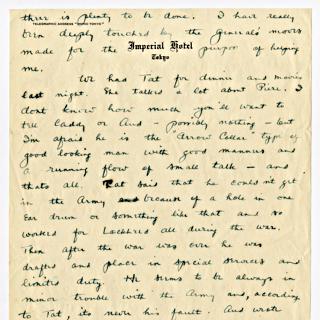 there is plenty to be done. I have really
TELEGRAPHIC ADDRESS "IMPEHO TOKYO"
been deeply touched by the General's moves
Imperial Hotel
Tokyo
made for the purpose of helping
me.
We had Tat for dinner and movies
last night. She talked a lot about Pete. I
dont know how much you'll want to
tell Laddy or And - possibly nothing - but
I'm afraid he is the "Arrow Collar" type of
good looking man with good manners and
a running flow of small talk - and
thats all. Tat said that he couldn't get
in the Army because of a hole in one
ear drum or something like that and so
worked for Lockheed all during the war.
Then after the war was over he was
drafted and place in special services and
limited duty. He seems to be always in
minor trouble with the Army and, according
to Tat, its never his fault. And wrote